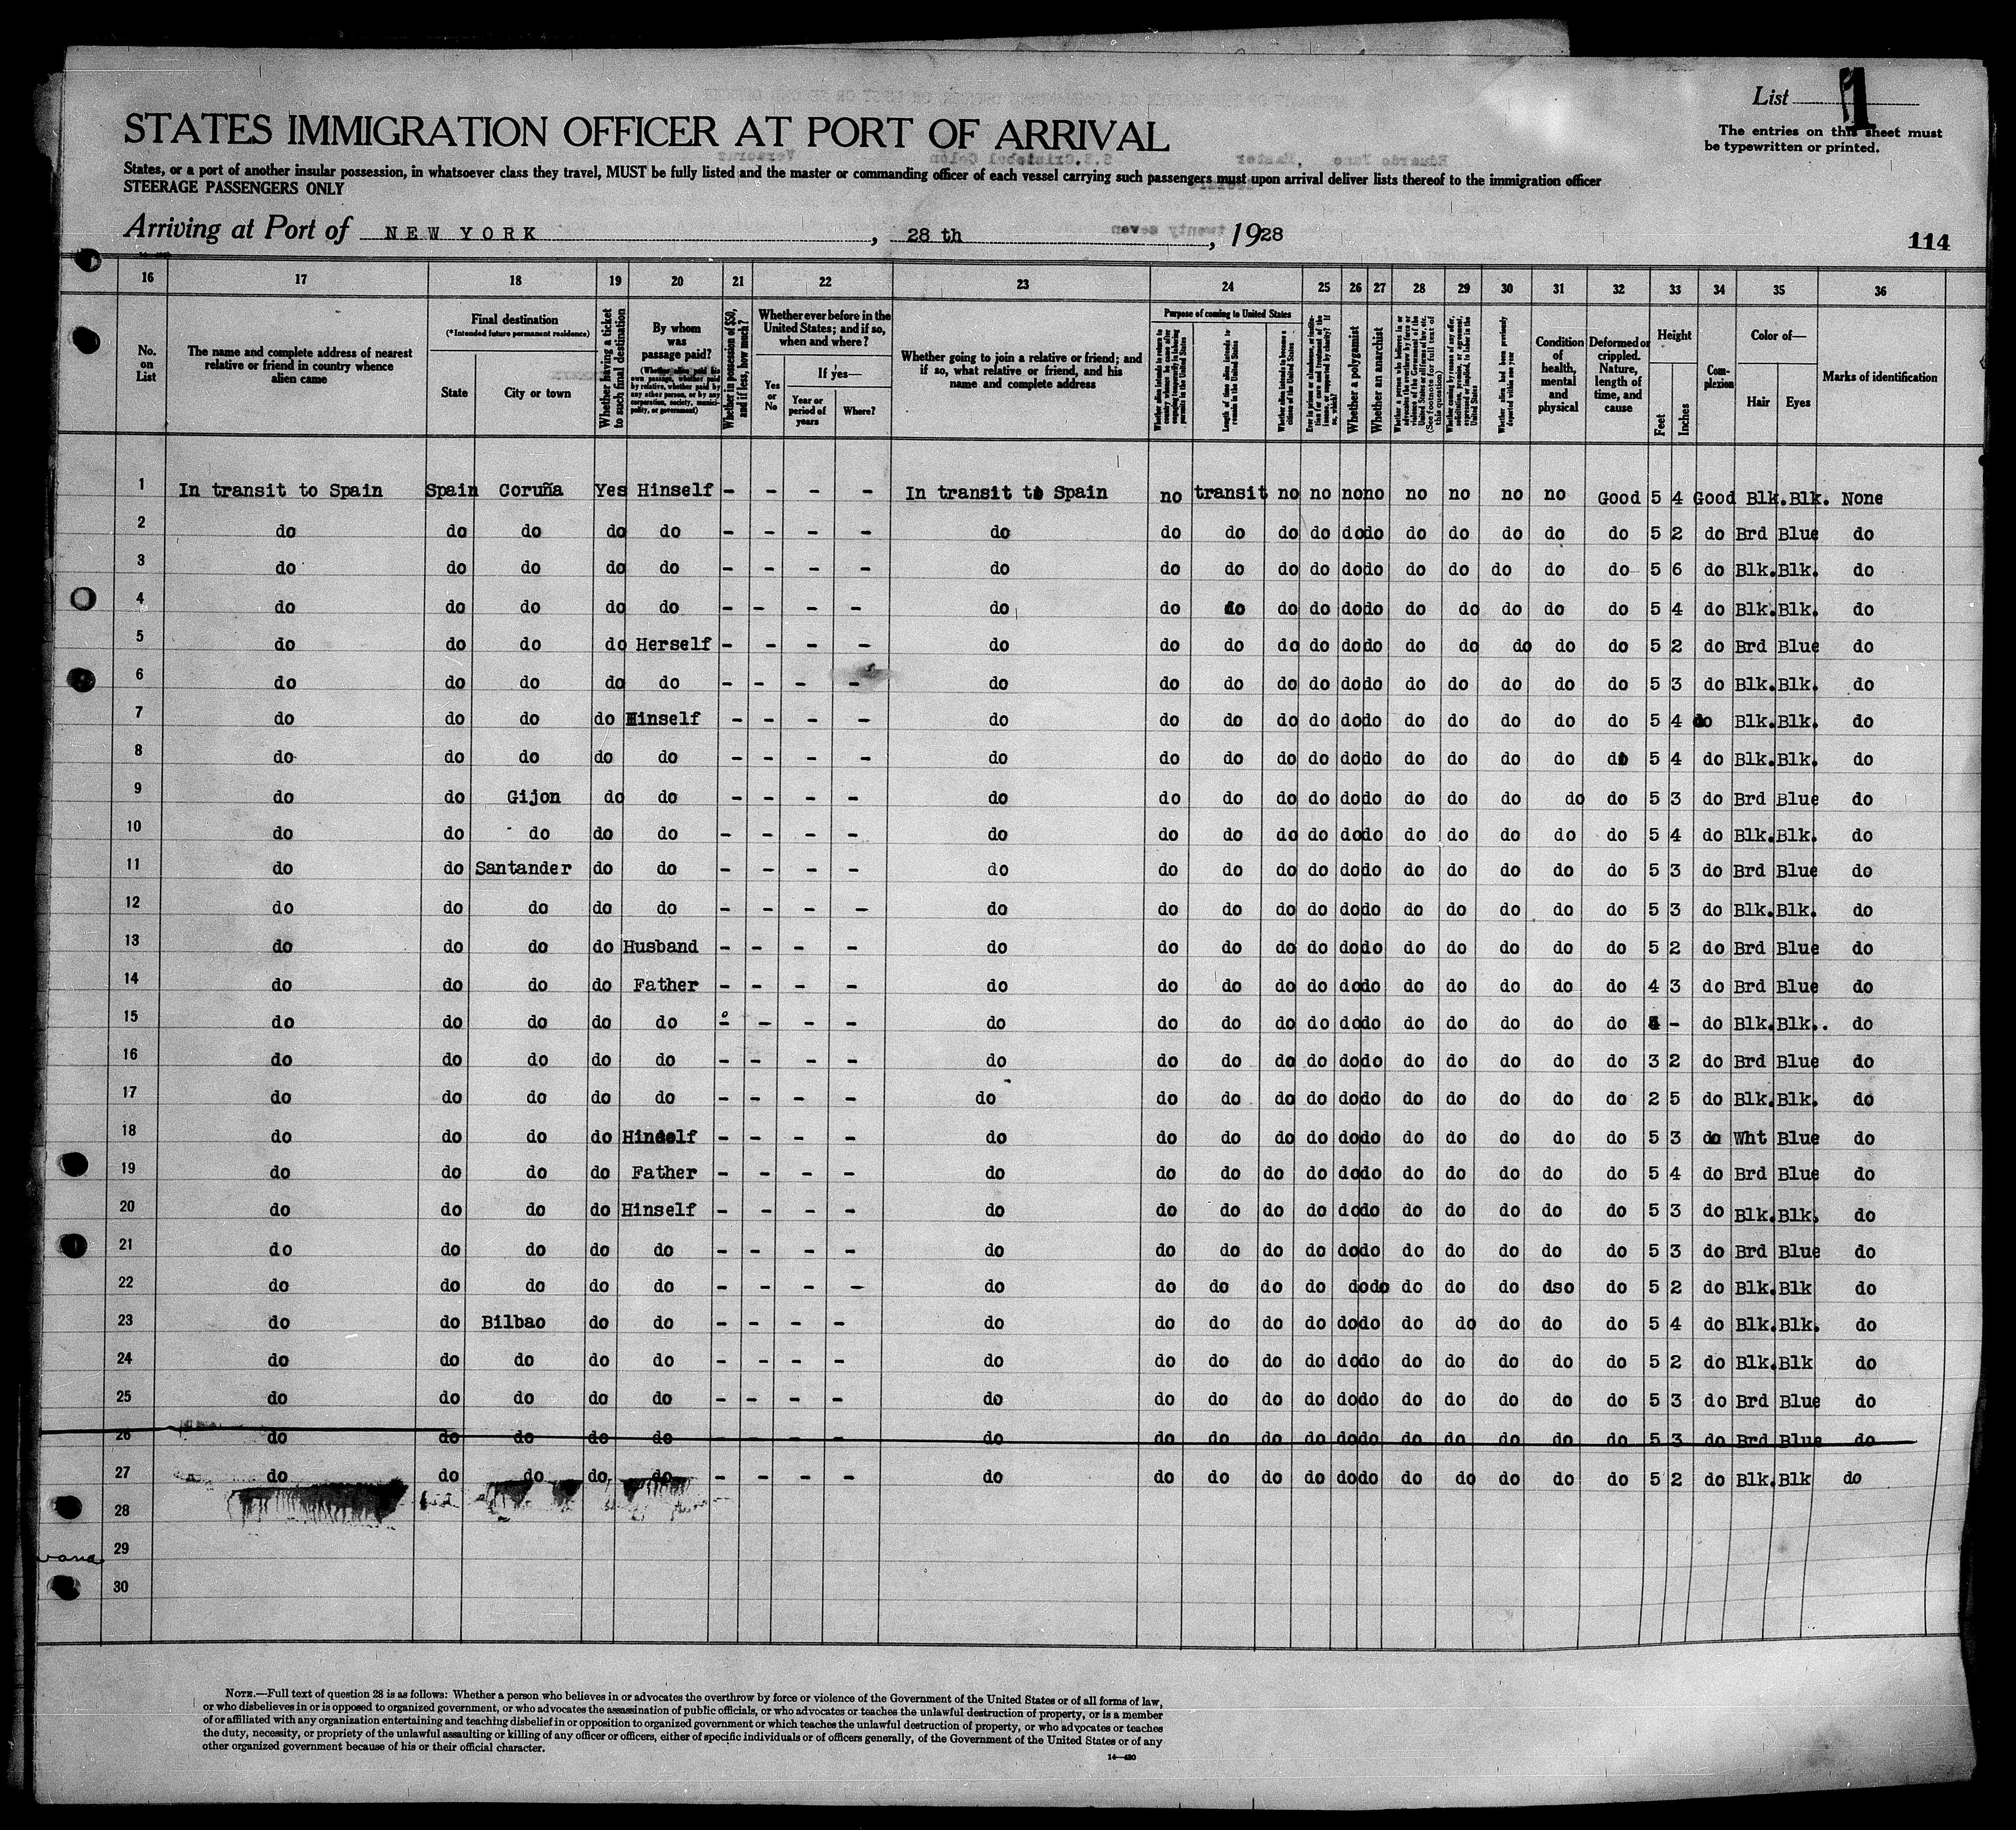 List 1
The entries on this sheet must
be typewritten or printed.
STATES IMMIGRATION OFFICER AT PORT OF ARRIVAL
States, or a port of another insular possession, in whatsoever class they travel, MUST be fully listed and the master or commanding officer of each vessel carrying such passengers must upon arrival deliver lists thereof to the immigration officer
STEERAGE PASSENGERS ONLY
Arriving at Port of NEW YORK, 28 th, 1928
114
16 17 18 19 20 21 22 23 24 25 26 27 28 29 30 31 32 33 34 35 36
No. on List
The name and complete address of nearest relative or friend in country whence alien came
Final destination
(*Intended future permanent residence)
State
City or town
Whether having a ticket to such final destination
By whom was passage paid?
(Whether alien paid his own passage, whether paid by relative, whether paid by any other person, or by any corporation, society, municipality, or government)
Whether in possession of $50, and if less, how much?
Whether ever before in the United States; and if so, when and where?
Yes or No
If yes—
Year or period of years
Where?
Whether going to join a relative or friend; and if so, what relative or friend, and his name and complete address
Purpose of coming to United States
Length of time alien intends to remain in the United States
Whether alien intends to become a citizen of the United States
Whether a polygamist
Whether an anarchist
Condition of health, mental and physical
Deformed or crippled. Nature, length of time, and cause
Height
Feet
Inches
Complexion
Color of—
Hair
Eyes
Marks of identification
1 In transit to Spain Spain Coruña Yes Hinself - - - - In transit to Spain no transit no no no no no no no no Good 5 4 Good Blk. Blk. None
2 do do do do do - - - - do do do do do do do do do do do do 5 2 do Brd Blue do
3 do do do do do - - - - do do do do do do do do do do do do 5 6 do Blk. Blk. do
4 do do do do do - - - - do do do do do do do do do do do do 5 4 do Blk. Blk. do
5 do do do do Herself - - - - do do do do do do do do do do do do 5 2 do Brd Blue do
6 do do do do do - - - - do do do do do do do do do do do do 5 3 do Blk. Blk. do
7 do do do do Hinself - - - - do do do do do do do do do do do do 5 4 do Blk. Blk. do
8 do do do do do - - - - do do do do do do do do do do do do 5 4 do Blk. Blk. do
9 do do Gijon do do - - - - do do do do do do do do do do do do 5 3 do Brd Blue do
10 do do do do do - - - - do do do do do do do do do do do do 5 4 do Blk. Blk. do
11 do do Santander do do - - - - do do do do do do do do do do do do 5 3 do Brd Blue do
12 do do do do do - - - - do do do do do do do do do do do do 5 3 do Blk. Blk. do
13 do do do do Husband - - - - do do do do do do do do do do do do 5 2 do Brd Blue do
14 do do do do Father - - - - do do do do do do do do do do do do 4 3 do Brd Blue do
15 do do do do do - - - - do do do do do do do do do do do do - do Blk. Blk.. do
16 do do do do do - - - - do do do do do do do do do do do do 3 2 do Brd Blue do
17 do do do do do - - - - do do do do do do do do do do do do 2 5 do Blk. Blk. do
18 do do do do Hinself - - - - do do do do do do do do do do do do 5 3 do Wht Blue do
19 do do do do Father - - - - do do do do do do do do do do do do 5 4 do Brd Blue do
20 do do do do Hinself - - - - do do do do do do do do do do do do 5 3 do Blk. Blk. do
21 do do do do do - - - - do do do do do do do do do do do do 5 3 do Brd Blue do
22 do do do do do - - - - do do do do do do do do do do dso do 5 2 do Blk. Blk do
23 do do Bilbao do do - - - - do do do do do do do do do do do do 5 4 do Blk. Blk. do
24 do do do do do - - - - do do do do do do do do do do do do 5 2 do Blk. Blk do
25 do do do do do - - - - do do do do do do do do do do do do 5 3 do Brd Blue do
26 do do do do do - - - - do do do do do do do do do do do do 5 3 do Brd Blue do
27 do do do do do - - - - do do do do do do do do do do do do 5 2 do Blk. Blk do
28
29
30
NOTE.—Full text of question 28 is as follows: Whether a person who believes in or advocates the overthrow by force or violence of the Government of the United States or of all forms of law,
or who disbelieves in or is opposed to organized government, or who advocates the assassination of public officials, or who advocates or teaches the unlawful destruction of property, or is a member
of or affiliated with any organization entertaining and teaching disbelief in or opposition to organized government or which teaches the unlawful destruction of property, or who advocates or teaches
the duty, necessity, or propriety of the unlawful assaulting or killing of any officer or officers, either of specific individuals or of officers generally, of the Government of the United States or of any
other organized government because of his or their official character.
14—430